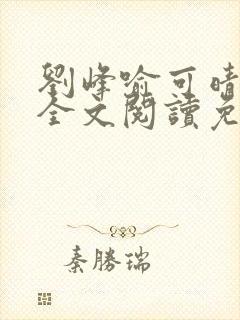 劉峰喻可晴
全文閱讀免
秦勝瑞